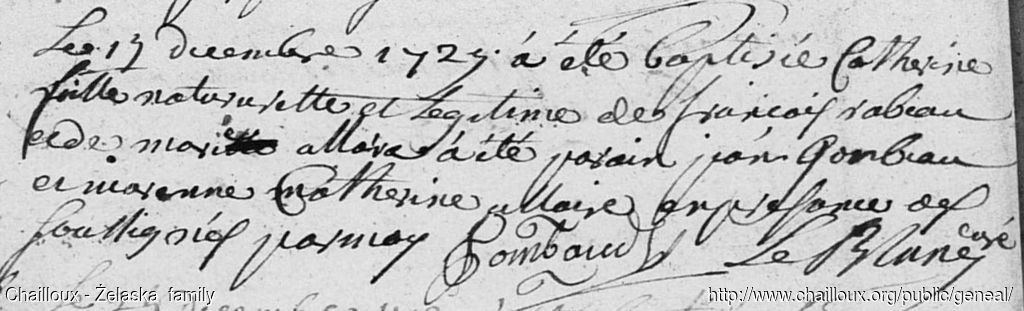 Le 17 decembre 1727 à été baptisée Catherine
fille natururelle et legitime de françois rabeau
et de marie allara à été parain jean Gombeau
et marenne Catherine allaire en presance des
soussignés par moy Gombaud Le Blanc curé
Chailloux - Żelaska family
http://www.chailloux.org/public/geneal/